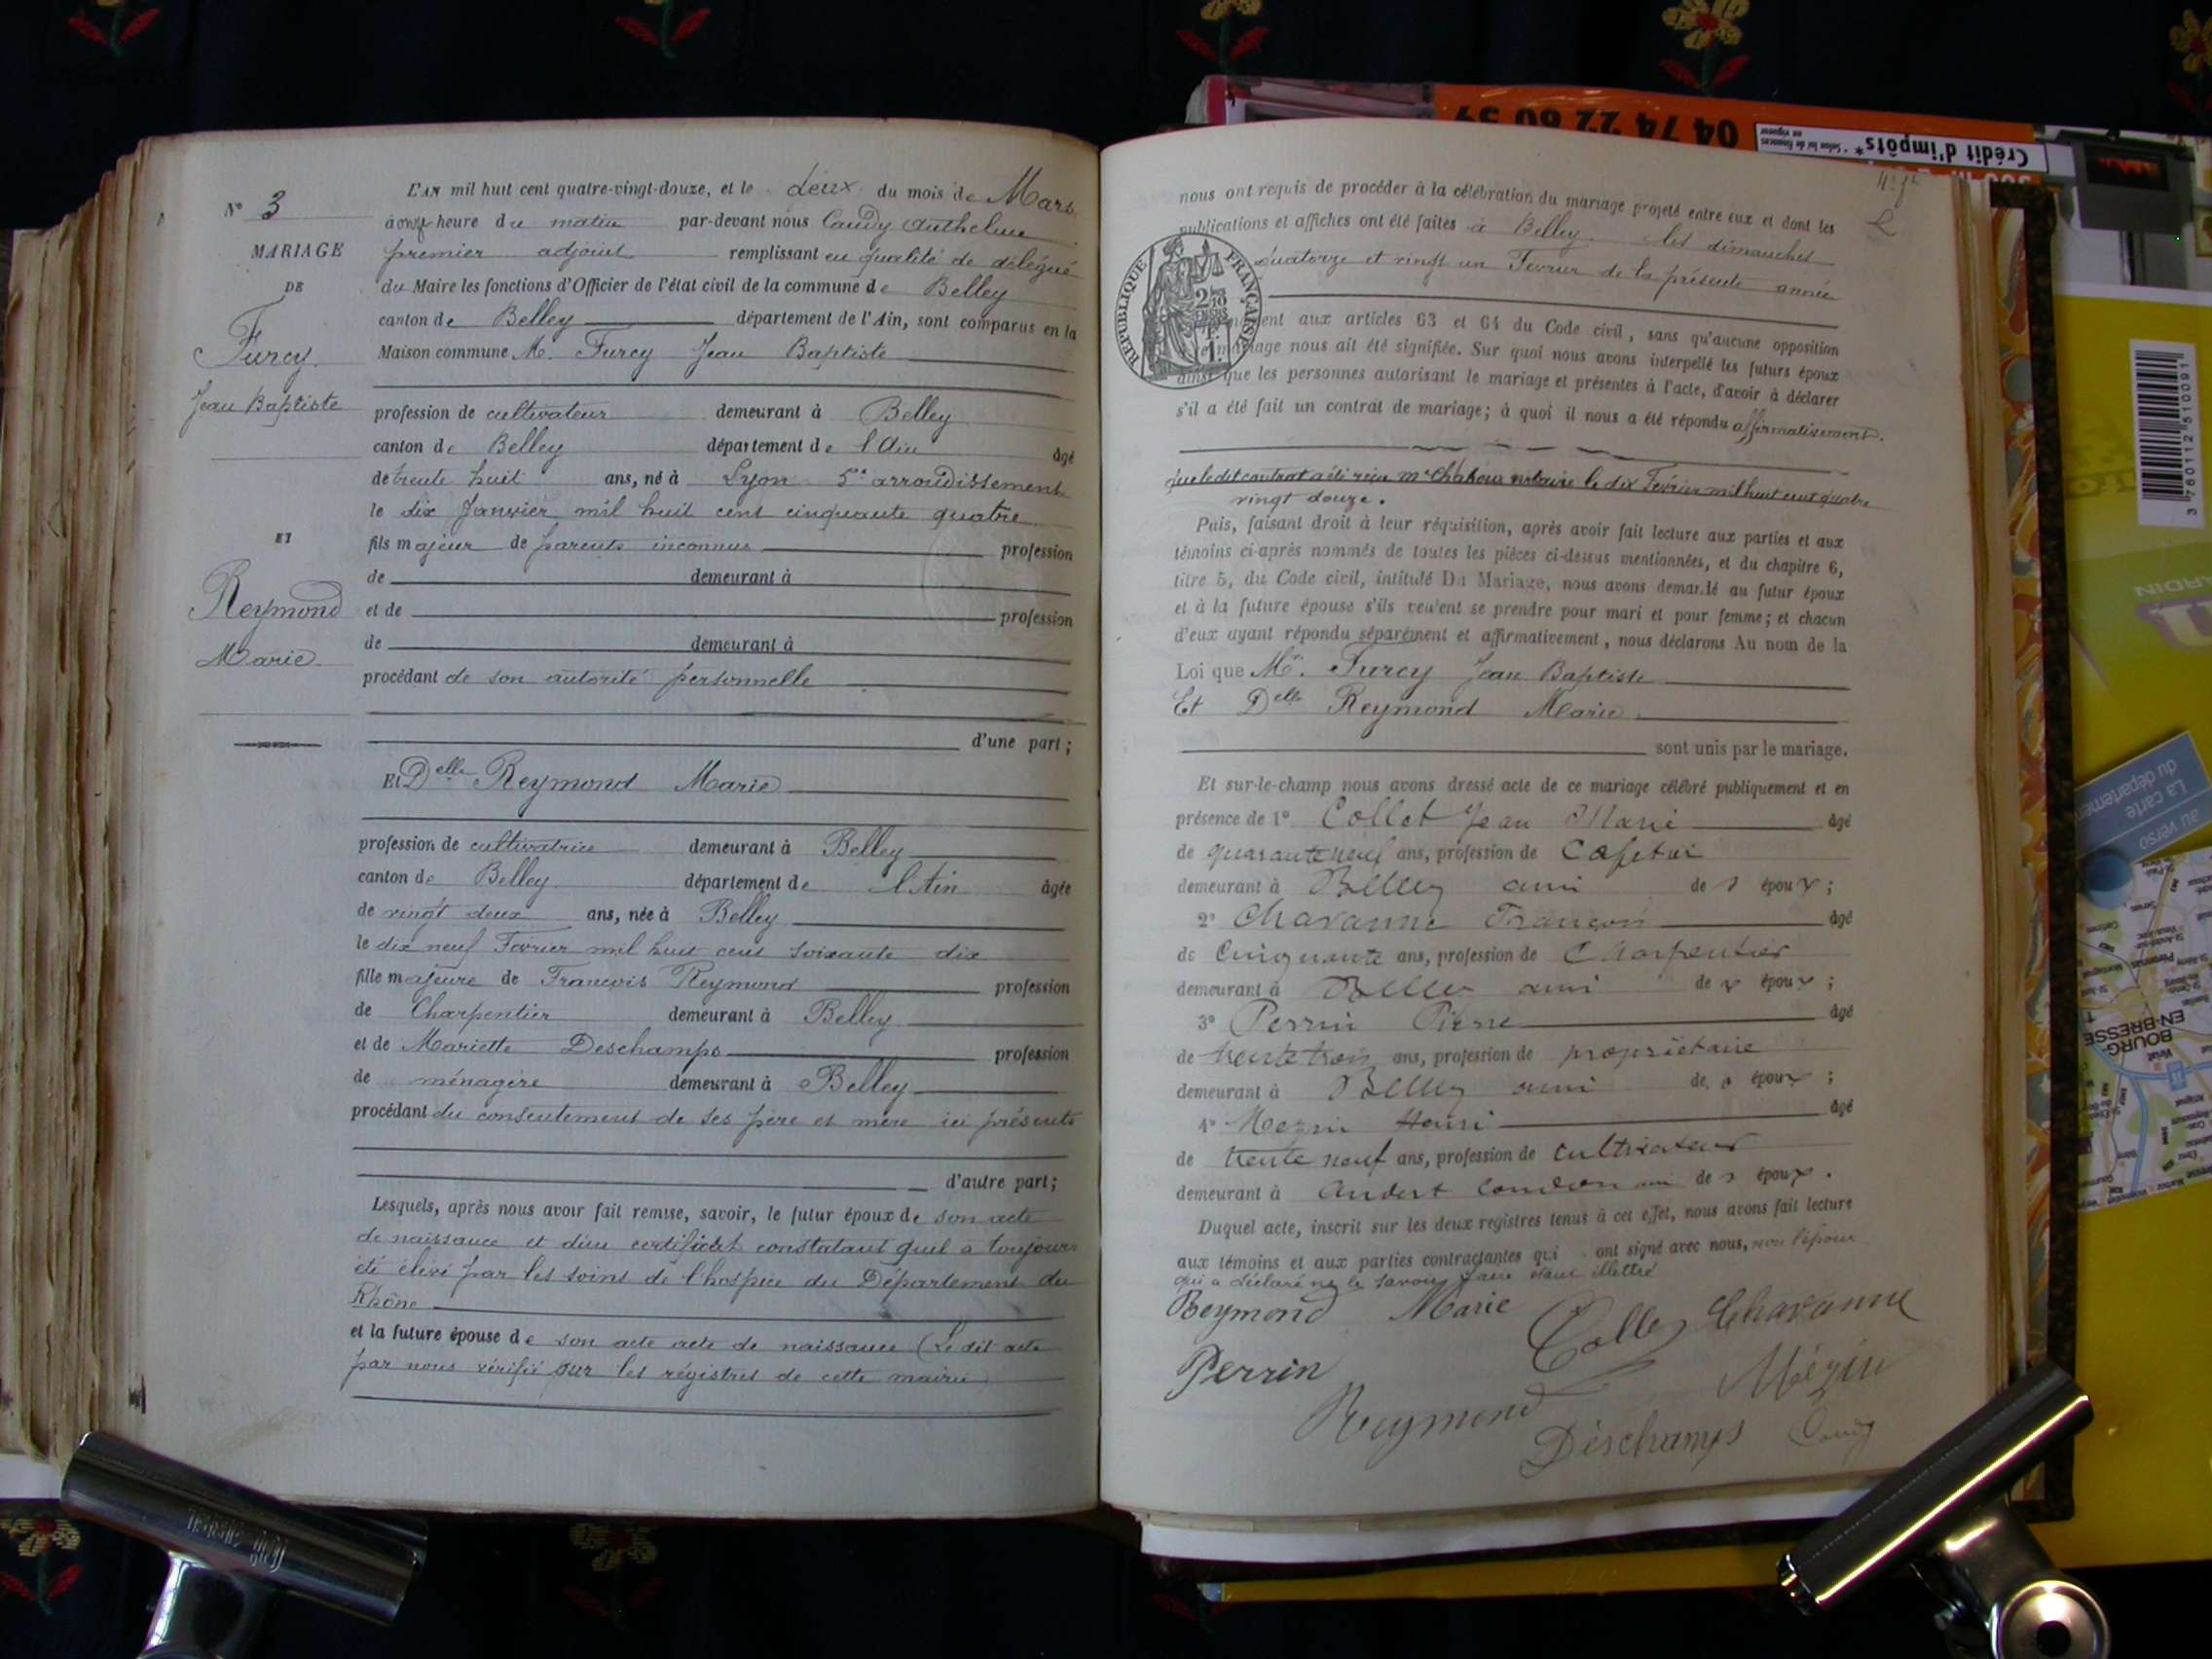 N° 3
MARIAGE
DE
Furcy
Jean Baptiste
ET
Reymond
Marie
L'AN mil huit cent quatre-vingt-douze, et le deux du mois de Mars
à onze heure du matin par-devant nous Caudy Anthelme
premier adjoint remplissant en qualité de délégué
du Maire les fonctions d'Officier de l'état civil de la commune de Belley
canton de Belley département de l'Ain, sont comparus en la
Maison commune M. Furcy Jean Baptiste
profession de cultivateur demeurant à Belley
canton de Belley département de l'Ain âgé
de trente huit ans, né à Lyon 5e arrondissement
le dix Janvier mil huit cent cinquante quatre
fils majeur de parents inconnus profession
de demeurant à
et de profession
de demeurant à
procédant de son autorité personnelle
d'une part;
Et Delle Reymond Marie
profession de cultivatrice demeurant à Belley
canton de Belley département de l'Ain âgée
de vingt deux ans, née à Belley
le dix neuf Fevrier mil huit cent soixante dix
fille majeure de Francois Reymond profession
de Charpentier demeurant à Belley
et de Mariette Deschamps profession
de ménagère demeurant à Belley
procédant du consentement de ses père et mère ici présents
d'autre part;
Lesquels, après nous avoir fait remise, savoir, le futur époux de son acte
de naissance et d'un certificat constatant qu'il a toujours
été élevé par les soins de l'hospice du Département du
Rhône
et la future épouse de son acte acte de naissance (Le dit acte
par nous vérifié sur les régistres de cette mairie)
nous ont requis de procéder à la célébration du mariage projeté entre eux et dont les
publications et affiches ont été faites à Belley les dimanches
quatorze et vingt un Fevrier de la présente année
RÉPUBLIQUE FRANÇAISE
aux articles 63 et 64 du Code civil, sans qu'aucune opposition
mariage nous ait été signifiée. Sur quoi nous avons interpellé les futurs époux
ainsi que les personnes autorisant le mariage et présentes à l'acte, d'avoir à déclarer
s'il a été fait un contrat de mariage; à quoi il nous a été répondu affirmativement.
que le dit contrat a été reçu Me notaire le dix Février mil huit cent quatre
vingt douze.
Puis, faisant droit à leur réquisition, après avoir fait lecture aux parties et aux
témoins ci-après nommés de toutes les pièces ci-dessus mentionnées, et du chapitre 6,
titre 5, du Code civil, intitulé Du Mariage, nous avons demandé au futur époux
et à la future épouse s'ils veulent se prendre pour mari et pour femme; et chacun
d'eux ayant répondu séparément et affirmativement, nous déclarons Au nom de la
Loi que Mr. Furcy Jean Baptiste
Et Delle Reymond Marie
sont unis par le mariage.
Et sur-le-champ nous avons dressé acte de ce mariage célébré publiquement et en
présence de 1° Collet Jean Marie âgé
de quarante neuf ans, profession de Cafetier
demeurant à Belley ami des époux;
2° Chavanne François âgé
de Cinquante ans, profession de Charpentier
demeurant à Belley ami des époux;
3° Perrin Pierre âgé
de trente trois ans, profession de propriétaire
demeurant à Belley ami des époux;
4° Mezin Henri âgé
de trente neuf ans, profession de cultivateur
demeurant à Andert Condon ami des époux.
Duquel acte, inscrit sur les deux registres tenus à cet effet, nous avons fait lecture
aux témoins et aux parties contractantes qui ont signé avec nous, non l'époux
qui a déclaré ne le savoir faire étant illettré
Reymond Marie Collet Chavanne
Perrin Mézin
Reymond
Deschamps Caudy
04 74 22 60 59
Crédit d'impôts*
3 760112 510091
JARDIN
La carte
du département
au verso
BOURG-
EN-BRESSE